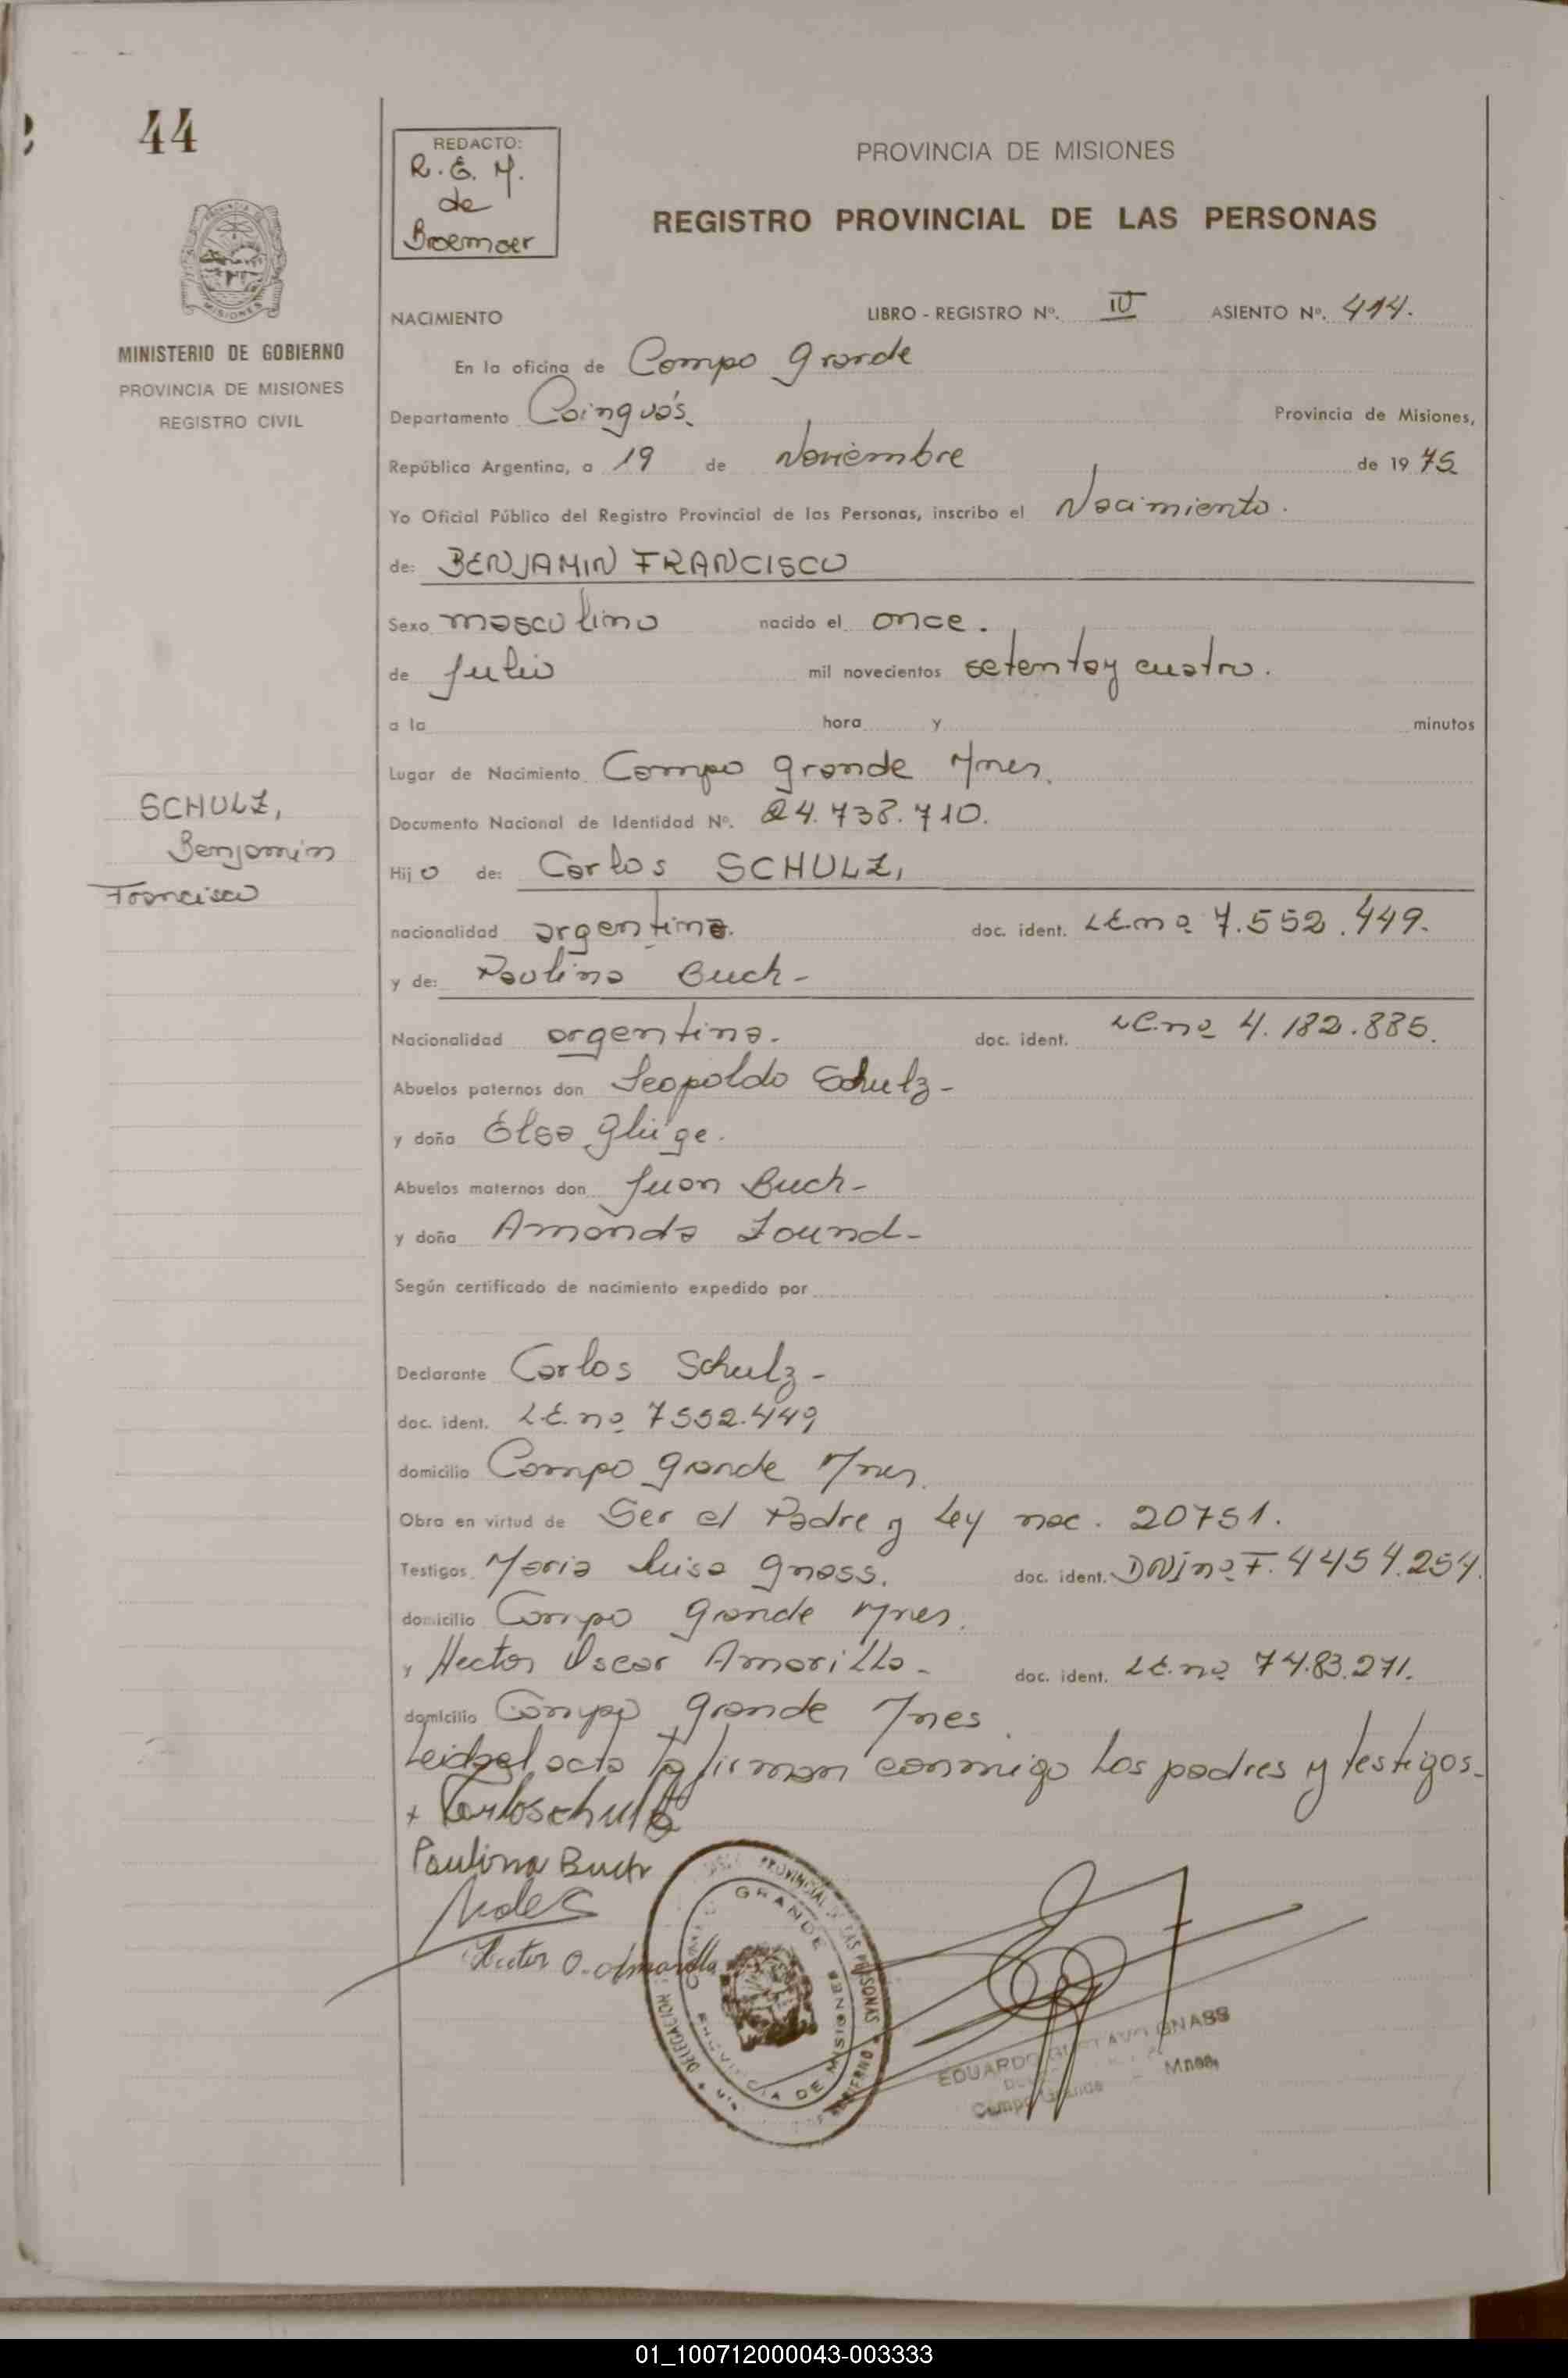 44
REDACTO:
R. E. M.
de
Broemser
PROVINCIA DE MISIONES
REGISTRO PROVINCIAL DE LAS PERSONAS
MINISTERIO DE GOBIERNO
PROVINCIA DE MISIONES
REGISTRO CIVIL
NACIMIENTO LIBRO - REGISTRO Nº. IV ASIENTO Nº. 414.
En la oficina de Campo Grande
Departamento Cainguás. Provincia de Misiones,
República Argentina, a 19 de Noviembre de 19 75
Yo Oficial Público del Registro Provincial de las Personas, inscribo el Nacimiento.
de: BENJAMIN FRANCISCO
Sexo masculino nacido el once.
de Julio mil novecientos setenta y cuatro.
a la hora y minutos
Lugar de Nacimiento Campo Grande Mnes.
Documento Nacional de Identidad Nº. 24.738.710.
SCHULZ,
Benjamin
Francisco
Hijo de: Carlos SCHULZ,
nacionalidad argentina. doc. ident. L.E.nº 7.552.449.
y de: Paulina Buch-
Nacionalidad argentina. doc. ident. LC.nº 4.182.885.
Abuelos paternos don Leopoldo Schulz-
y doña Elsa Glüge.
Abuelos maternos don Juan Buch-
y doña Amanda Zound-
Según certificado de nacimiento expedido por
Declarante Carlos Schulz-
doc. ident. L.E. nº 7552.449
domicilio Campo Grande Mnes.
Obra en virtud de Ser el Padre y Ley nac. 20751.
Testigos Maria Luisa Gnass. doc. ident. DNI nº F. 4454.254.
domicilio Campo Grande Mnes.
y Hector Oscar Amarilla- doc. ident. L.E. nº 74.83.271.
domicilio Campo Grande Mnes
Leida el acta la firman conmigo los padres y testigos-
x Carloschulz
Paulina Buch
Hector O. Amarilla
PROVINCIAL DE LAS PERSONAS
DELEGACION
CAMPO GRANDE
PROVINCIA DE MISIONES
EDUARDO GUSTAVO GNASS
Campo Grande Mnes.
01_100712000043-003333